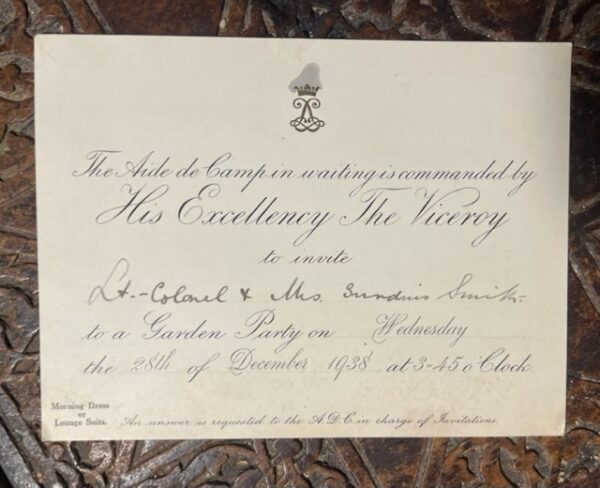 The Aide de Camp in waiting is commanded by
His Excellency The Viceroy
to invite
Lt.-Colonel & Mrs. Smith
to a Garden Party on Wednesday
the 28th of December 1938 at 3-45 o'Clock.
Morning Dress
or
Lounge Suits.
An answer is requested to the A.D.C. in charge of Invitations.